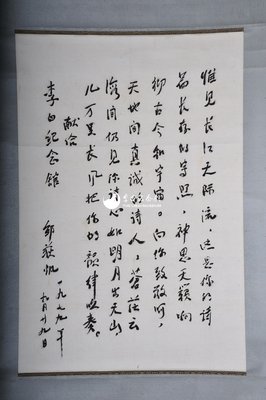 惟见长江天际流,这是你的诗
篇长存的写照,神思天籁响
彻古今和宇宙。向你致敬呵,
天地间真诚的诗人,苍茫云
海间仍见你诗心如明月出天山
几万里长风把你的韵律吹奏。
献给
李白纪念馆
邹荻帆
一九七九年
九月廿九日